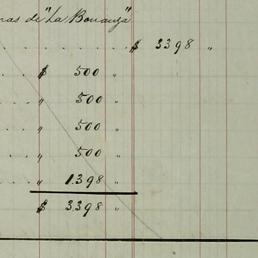 nas de "La Bonanza"
. . . . . . . . . . . . $ 3398 "
. . . $ 500 "
. . . " 500 "
. . . " 500 "
. . . " 500 "
. . . " 1.398 "
$ 3398 "